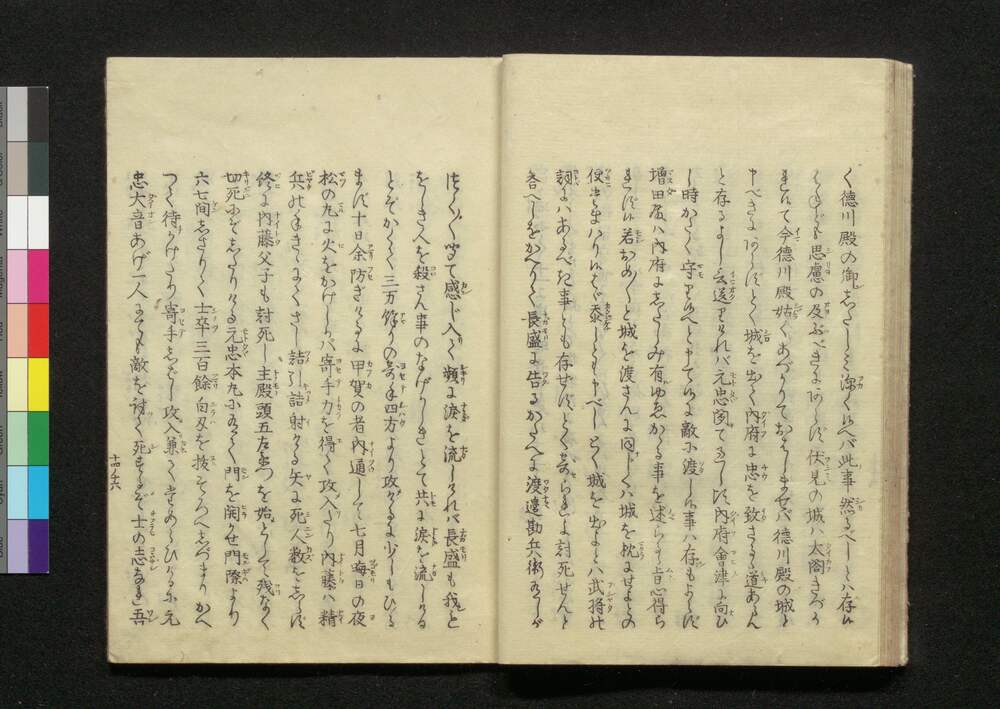 く徳川殿の御したしミ深くいへバ此事然るべしとハ存い
へども思慮の及ぶべきにあらず伏見の城ハ太閤きづか
れて今徳川殿姑くあづかりておはしませバ徳川殿の城と
申べきにあらずとく城を出て内府に忠を致さるゝ道あらん
と存るよし云送りければ元忠聞て
内府會津に向ひ
し時かたく守りいへとまて敵に渡しい事ハ存もよらず
増田殿ハ内府にしたしみ有ゆゑかゝる事を述らるゝと心得ら
れず若おめ〳〵と城を渡さんに同じくハ城を枕にせよとの
使にまハりいはゞ忝しとも申べしとく城を出よとハ武将の
詞にハあるべき事とも存せずとく寄られよ討死せんと
答へしをかへりて長盛に告るかたへに渡邉勘兵衛有しが
つく〴〵聞て感じ入て頻に涙を流しければ長盛も我と
をしき人を殺さん事のなげかしきとて共に涙を流しける
とぞかくて三万餘りの寄手四方より攻けるに少しもひる
まず十日余防ぎけるに甲賀の者内通して七月晦日の夜
松の丸に火をかけしかバ寄手力を得て攻入たり内藤ハ精
兵の手きゝにてさし詰引詰射ける矢に死人数をしらず
終に内藤父子も討死し主殿頭五左衛門を始として残なく
切死にぞしたりける元忠本丸に有て門を開かせ門際より
六七間しさりて士卒三百餘白刃を抜そろへしづまりかへ
つて待かけたり寄手しばし攻入兼てためらひけるに元
忠大音あげ一人にても敵を討て死するぞ士の志なれ吾
十四ノ六